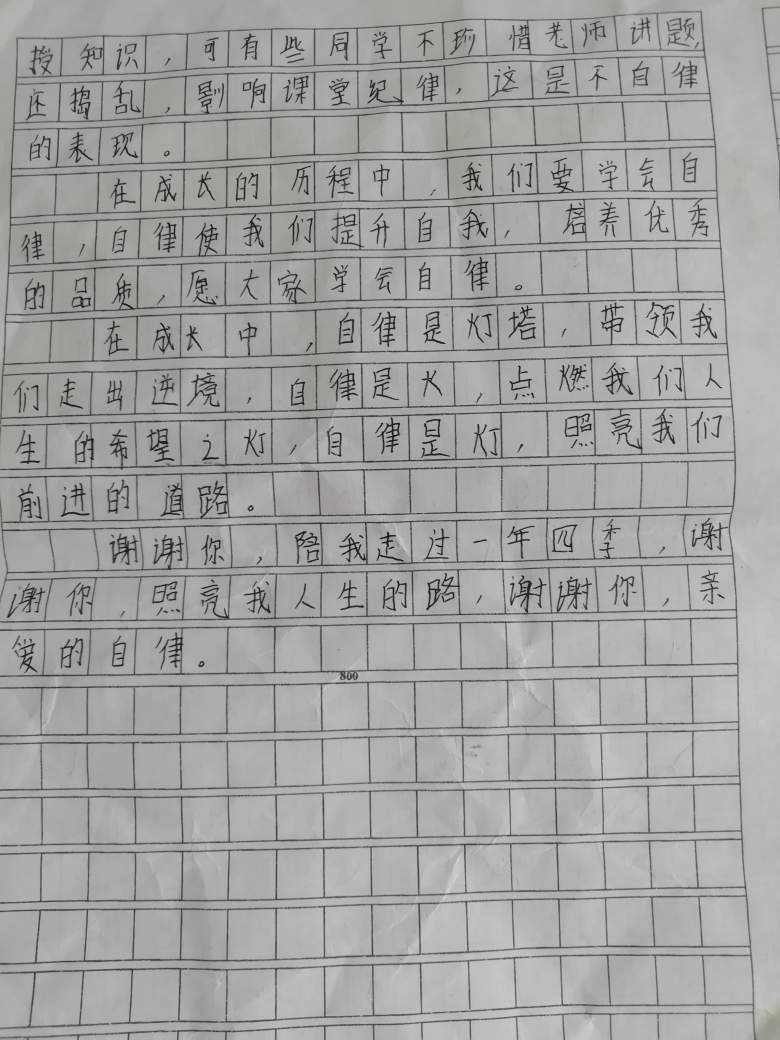 授知识，可有些同学不珍惜老师讲题，
还捣乱，影响课堂纪律，这是不自律
的表现。
在成长的历程中，我们要学会自
律，自律使我们提升自我，培养优秀
的品质，愿大家学会自律。
在成长中，自律是灯塔，带领我
们走出逆境，自律是火，点燃我们人
生的希望之灯，自律是灯，照亮我们
前进的道路。
谢谢你，陪我走过一年四季，谢
谢你，照亮我人生的路，谢谢你，亲
爱的自律。
800